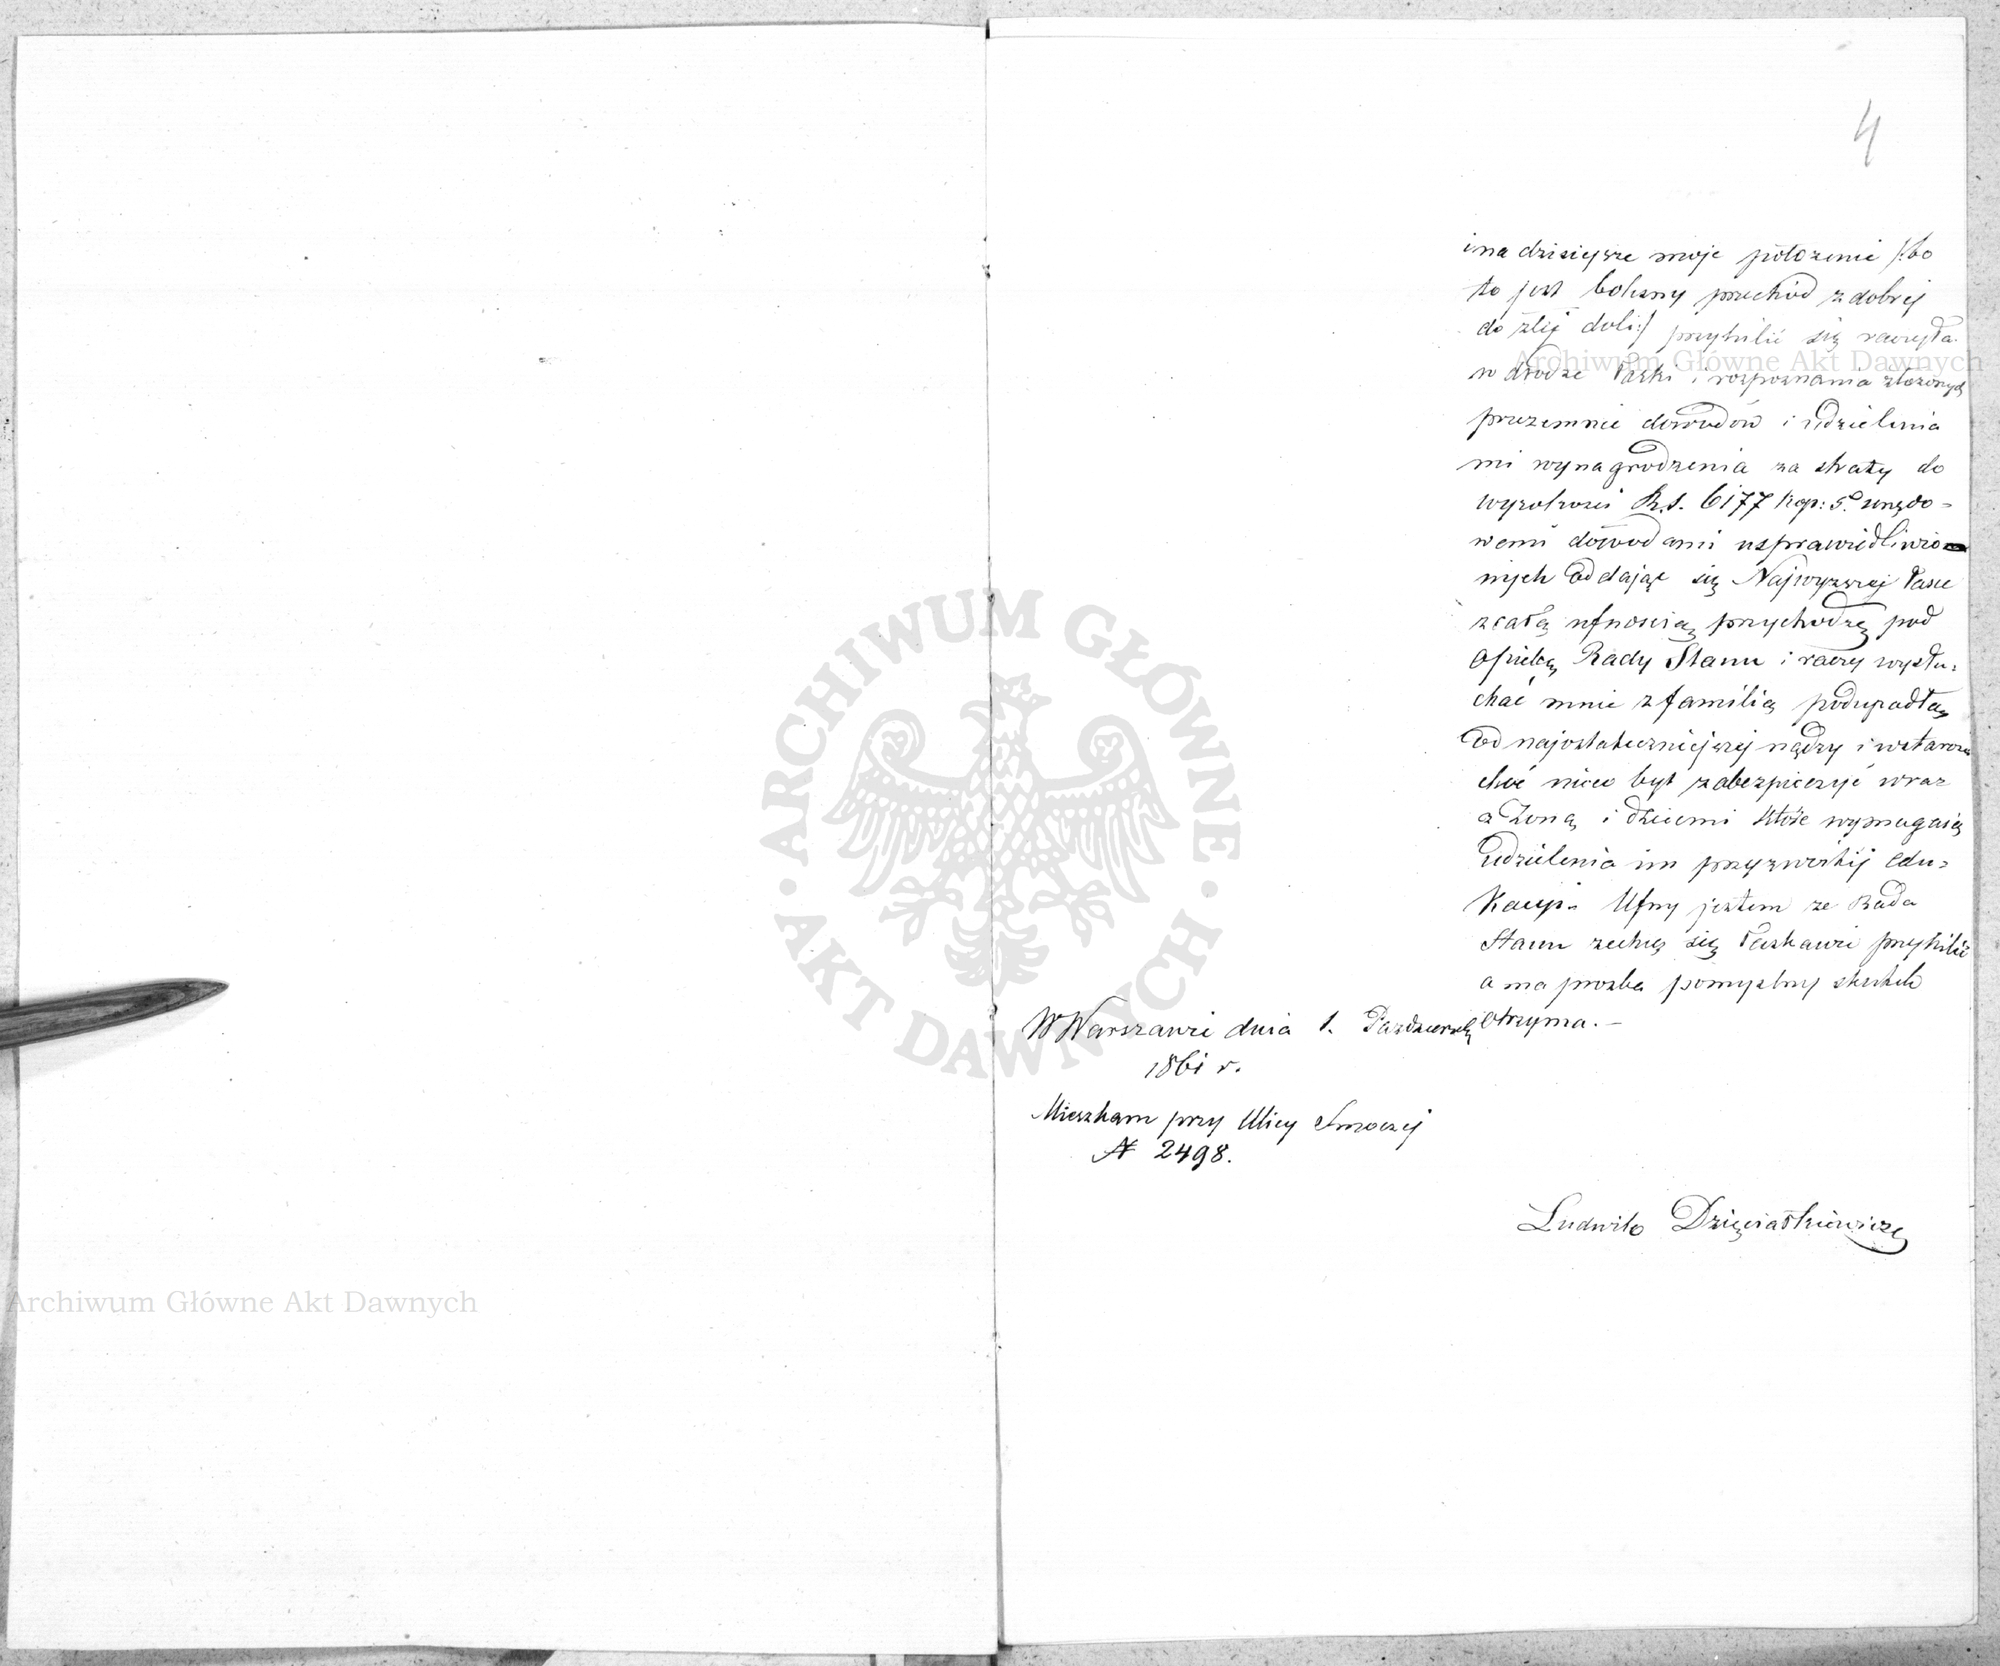 4
i na dzisiejsze moje położenie /:bo
to jest bolesny przechód z dobrej
do złej doli:/ przychilić się raczyła
w drodze łaski i rozpoznania złożonych
przezemnie dowodów i udzielenia
mi wynagrodzenia za straty do
wysokości R.s. 6177 kop: 5. urzędo-
wemi dowodami usprawiedliwio-
nych oddając się Najwyższej łasce
z całą ufnością przychodzę pod
opiekę Rady Stanu i raczy wysłu-
chać mnie z familią podupadłą
od najostateczniejszej nędzy i w starości
choć nieco byt zabezpieczyć wraz
z Żoną i dziećmi które wymagają
udzielenia im przyzwoitej edu-
kacyi. Ufny jestem ze Rada
Stanu zechce się łaskawie przychilić
a ma prozba pomyslny skutek
otrzyma. –
W Warszawie dnia 1. Pazdziernika
1861 r.
Mieszkam przy Ulicy Smoczej
N 2498.
Ludwik Dzięciatkiewicz
Archiwum Główne Akt Dawnych
Archiwum Główne Akt Dawnych
ARCHIWUM GŁÓWNE
AKT DAWNYCH